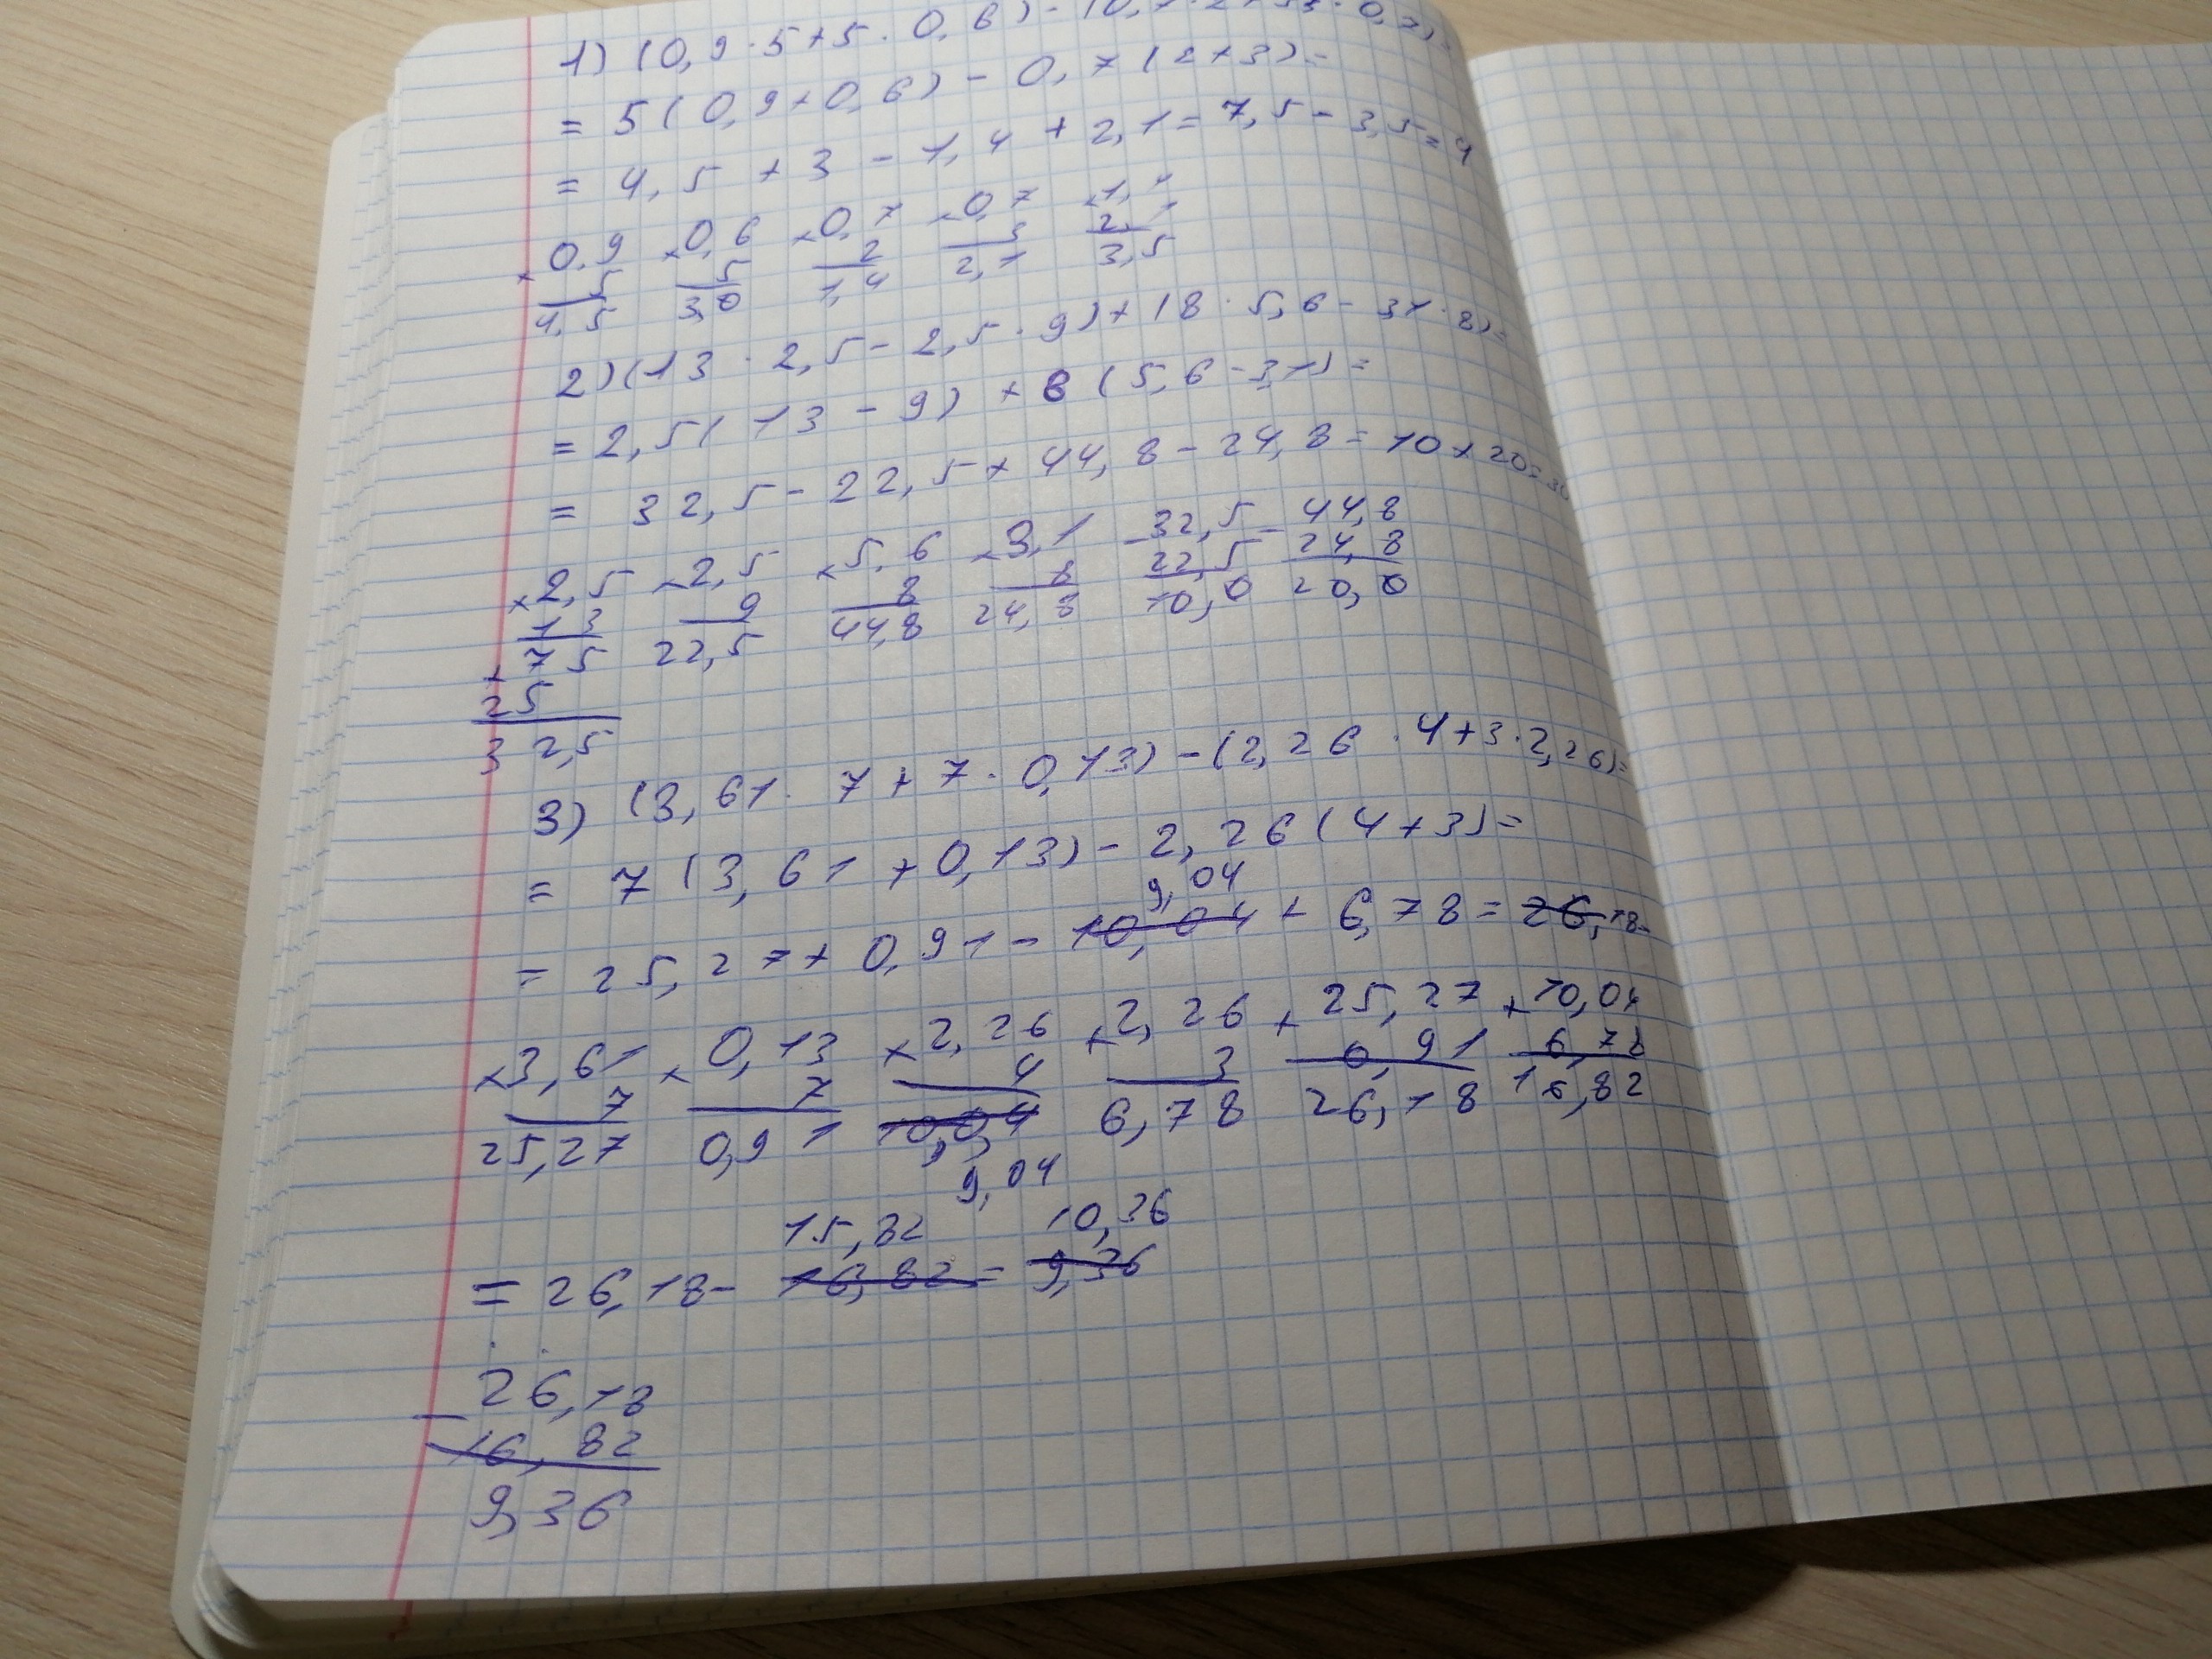 1) (0,9 · 5 + 5 · 0,6) - (0,7 · 2 + 3 · 0,7) =
= 5 (0,9 + 0,6) - 0,7 (2 + 3) =
= 4,5 + 3 - 1,4 + 2,1 = 7,5 - 3,5 = 4
× 0,9 × 0,6 × 0,7 × 0,7 × 1,4
5 5 2 3 2,1
4,5 3,0 1,4 2,1 3,5
2) (13 · 2,5 - 2,5 · 9) + (8 · 5,6 - 3,1 · 8) =
= 2,5 (13 - 9) + 8 (5,6 - 3,1) =
= 32,5 - 22,5 + 44,8 - 24,8 = 10 + 20 = 30
× 2,5 × 2,5 × 5,6 × 3,1 - 32,5 - 44,8
13 9 8 8 22,5 24,8
+ 75 22,5 44,8 24,8 10,0 20,0
25
32,5
3) (3,61 · 7 + 7 · 0,13) - (2,26 · 4 + 3 · 2,26) =
= 7 (3,61 + 0,13) - 2,26 (4 + 3) =
9,04
= 25,27 + 0,91 - 10,04 + 6,78 = 26,18 -
× 3,61 × 0,13 × 2,26 × 2,26 + 25,27 + 10,04
7 7 4 3 0,91 6,78
25,27 0,91 10,04 6,78 26,18 16,82
9,04
15,82 10,36
= 26,18 - 16,82 = 9,36
- 26,18
16,82
9,36